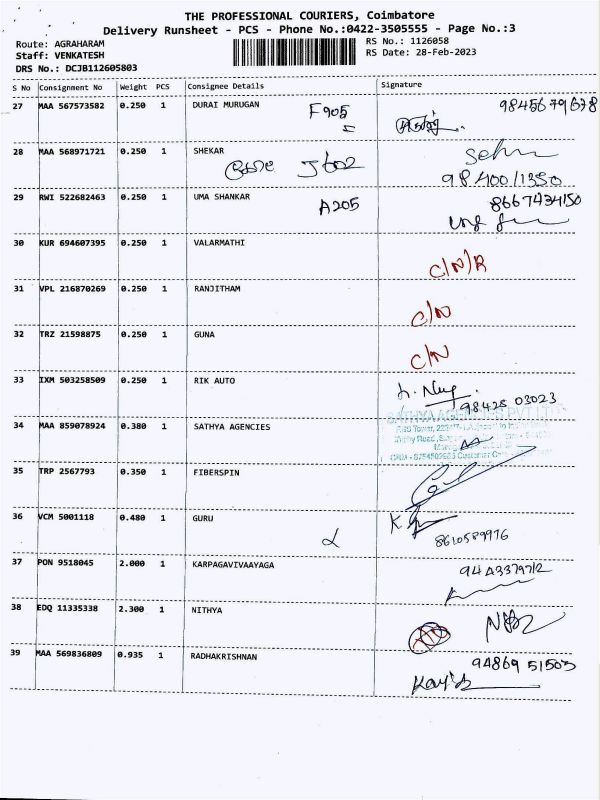 THE PROFESSIONAL COURIERS, Coimbatore
Delivery Runsheet - PCS - Phone No.:0422-3505555 - Page No.:3
Route: AGRAHARAM
RS No.: 1126058
Staff: VENKATESH
RS Date: 28-Feb-2023
DRS No.: DCJB112605803
S No Consignment No Weight PCS Consignee Details Signature
27 MAA 567573582 0.250 1 DURAI MURUGAN F905 9845679678
28 MAA 568971721 0.250 1 SHEKAR
98400/1350
29 RWI 522682463 0.250 1 UMA SHANKAR A205 8667434150
30 KUR 694607395 0.250 1 VALARMATHI C/N/R
31 VPL 216870269 0.250 1 RANJITHAM C/N
32 TRZ 21598875 0.250 1 GUNA C/N
33 IXM 503258509 0.250 1 RIK AUTO
98428 03023
34 MAA 859078924 0.380 1 SATHYA AGENCIES
35 TRP 2567793 0.350 1 FIBERSPIN
36 VCM 5001118 0.480 1 GURU
8610589976
37 PON 9518045 2.000 1 KARPAGAVIVAAYAGA
38 EDQ 11335338 2.300 1 NITHYA
39 MAA 569836809 0.935 1 RADHAKRISHNAN 94869 51503